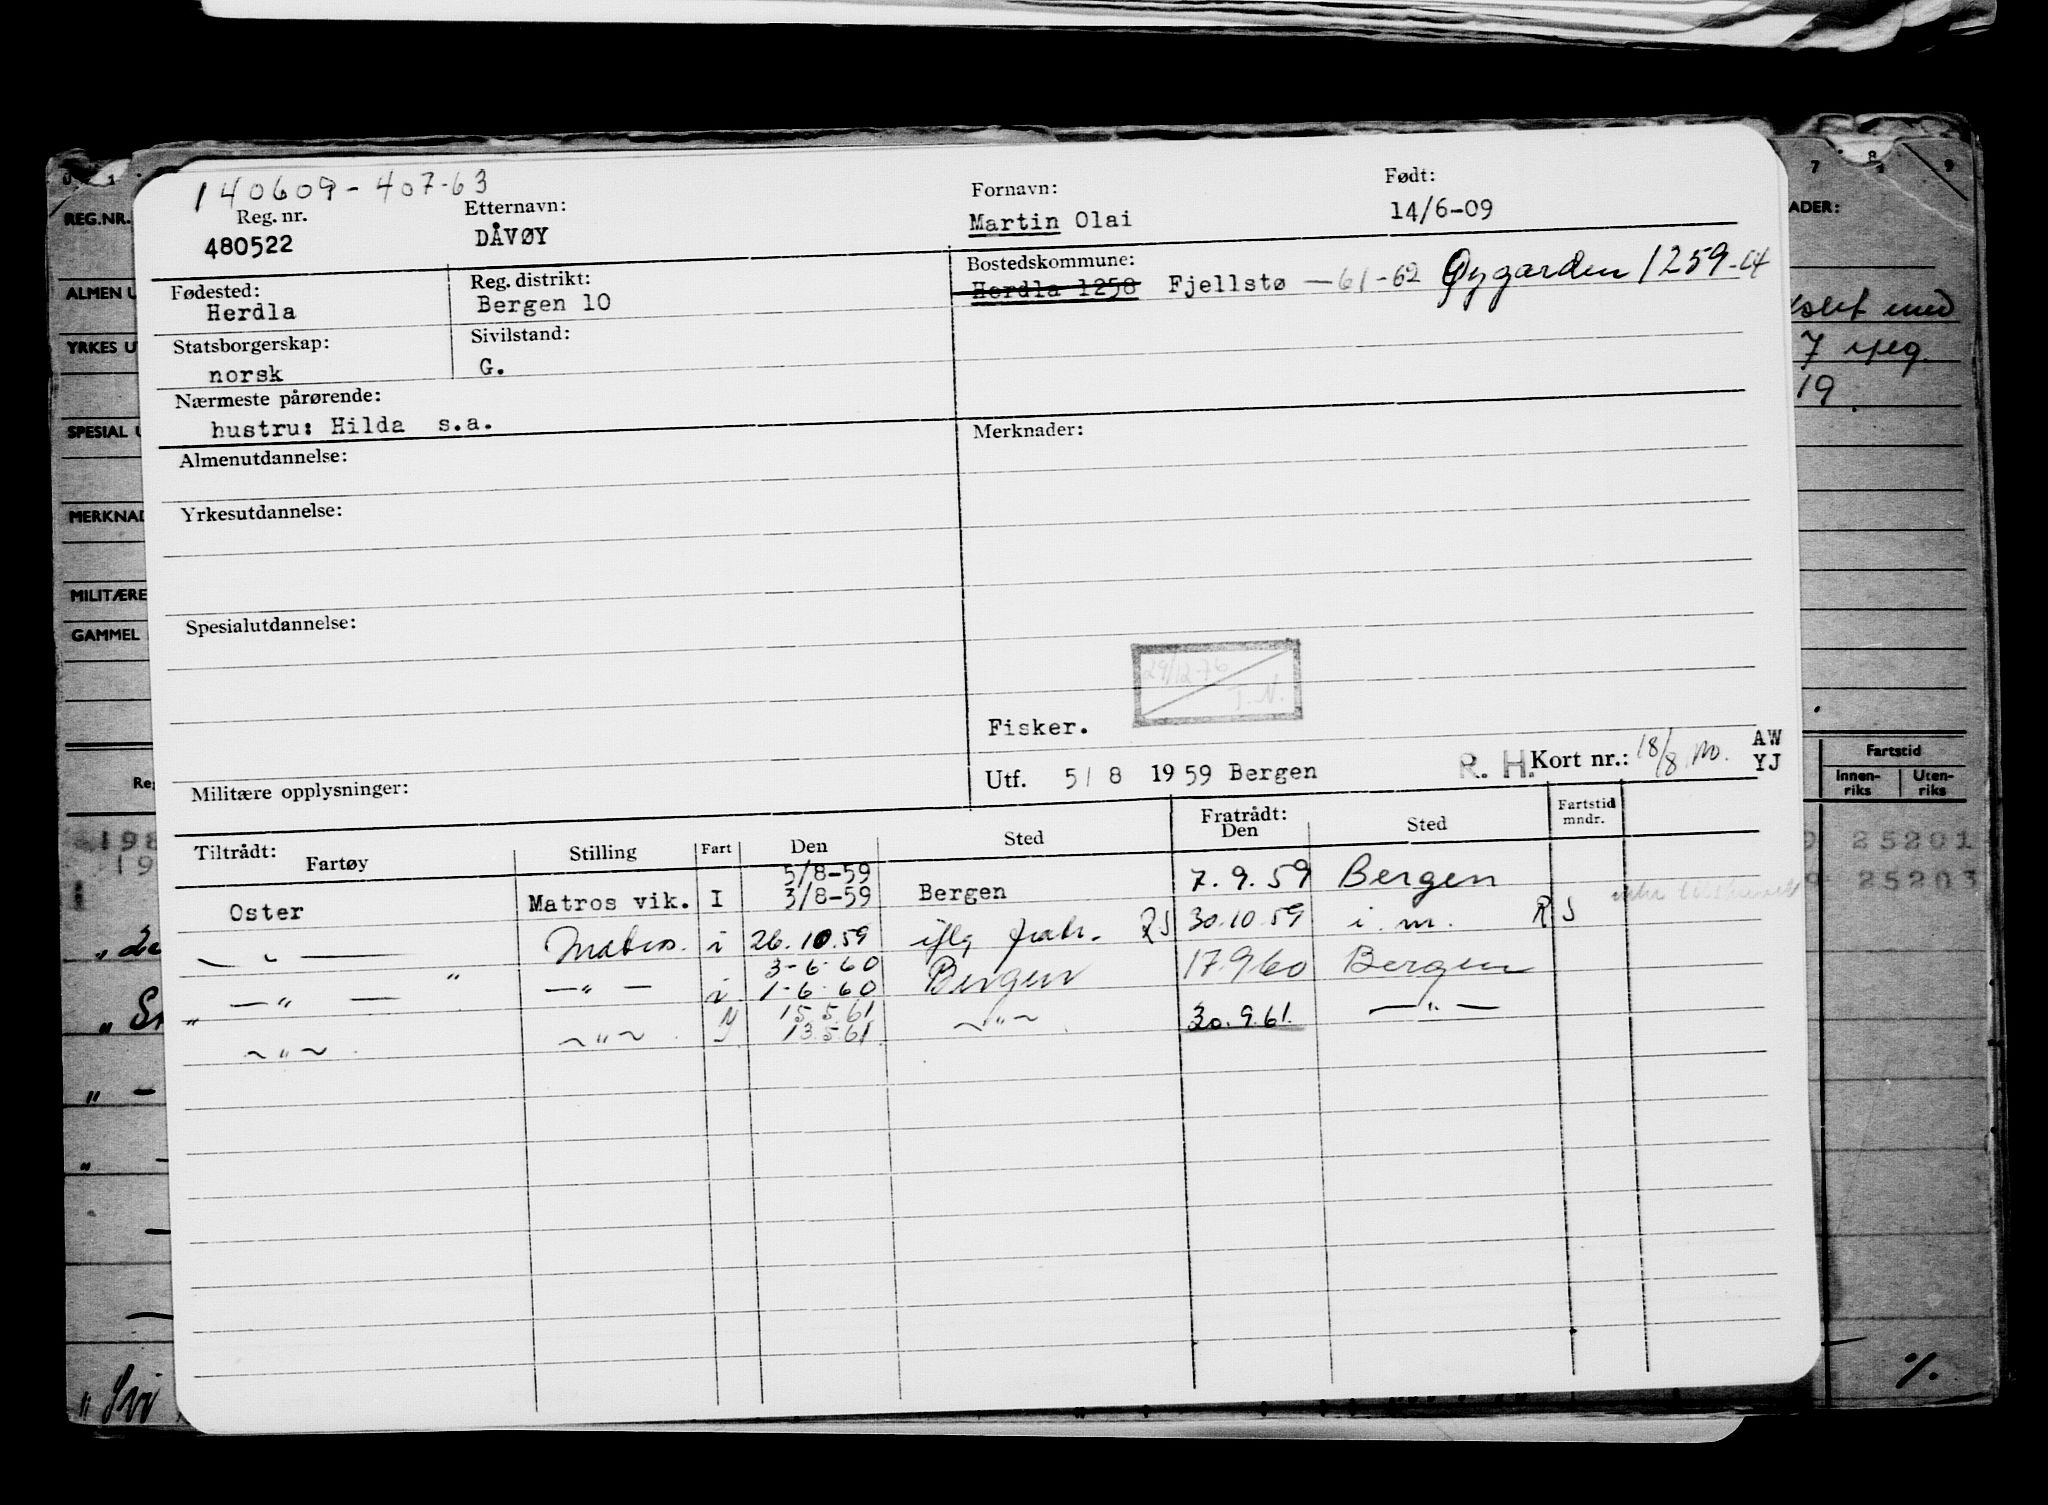 140609-407-63
Reg. nr. Etternavn: Fornavn: Født:
480522 DÅVØY Martin Olai 14/6-09
Fødested: Reg. distrikt: Bostedskommune:
Herdla Bergen 10 Herdla 1258 Fjellstø —61-62 Øygarden 1259-64
Statsborgerskap: Sivilstand:
norsk G.
Nærmeste pårørende:
hustru: Hilda s.a.
Almenutdannelse: Merknader:
Yrkesutdannelse:
Spesialutdannelse:
29/12-76
T.N.
Fisker.
Militære opplysninger: Utf. 5/ 8 1959 Bergen R. H. Kort nr.: 18/8 AW
YJ
Tiltrådt: Fartøy Stilling Fart Den Sted Fratrådt: Den Sted Fartstid mndr.
5/8-59
Oster Matros vik. I 3/8-59 Bergen 7.9.59 Bergen
— " — Matros. i 26.10.59 iflg fratr. RS 30.10.59 i. m. RS
3-6-60
— " — " — " — i 1-6-60 Bergen 17.9.60 Bergen
15.5.61
" ~ " ~ ~ " ~ 13.5.61. ~ " ~ 30.9.61. — " —
0 1 7 8 9
REG.NR.
ADER:
ALMEN U
YRKES U
7
19
SPESIAL U
MERKNAD
MILITÆRE
GAMMEL
Reg
Fartstid
Innen-riks Uten-riks
198 25201
19 25203
" -
"